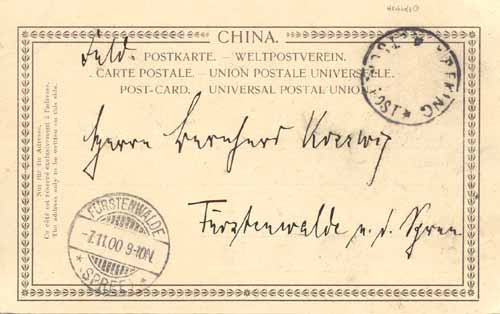 CHINA.
Feld.
POSTKARTE. – WELTPOSTVEREIN.
CARTE POSTALE. UNION POSTALE UNIVERSELLE.
POST-CARD. UNIVERSAL POSTAL UNION.
Nur für die Adresse.
Ce côté est réservé exclusivement à l'adresse.
The address only to be written on this side.
PEKING
Herrn Bernhard
Fürstenwalde a. d. Spree
FÜRSTENWALDE
-7.11.00 9-10N.
* (SPREE) *